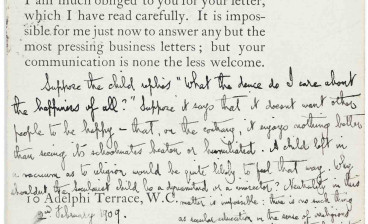 I am much obliged to you for your letter,
which I have read carefully. It is impos-
sible for me just now to answer any but the
most pressing business letters; but your
communication is none the less welcome.
Suppose the child replies "What the deuce do I care about
the happiness of all?" Suppose it says that it doesn't want other
people to be happy – that, on the contrary, it enjoys nothing better
than seeing its schoolmates beaten or humiliated. A child left in
a vacuum as to religion would be quite likely to feel that way. Why
shouldn't the secularist child be a dynamitard or a vivisector? Neutrality in this
10 Adelphi Terrace, W.C. matter is impossible: there is no such thing
2nd February 1909. as secular education in the sense of religiously